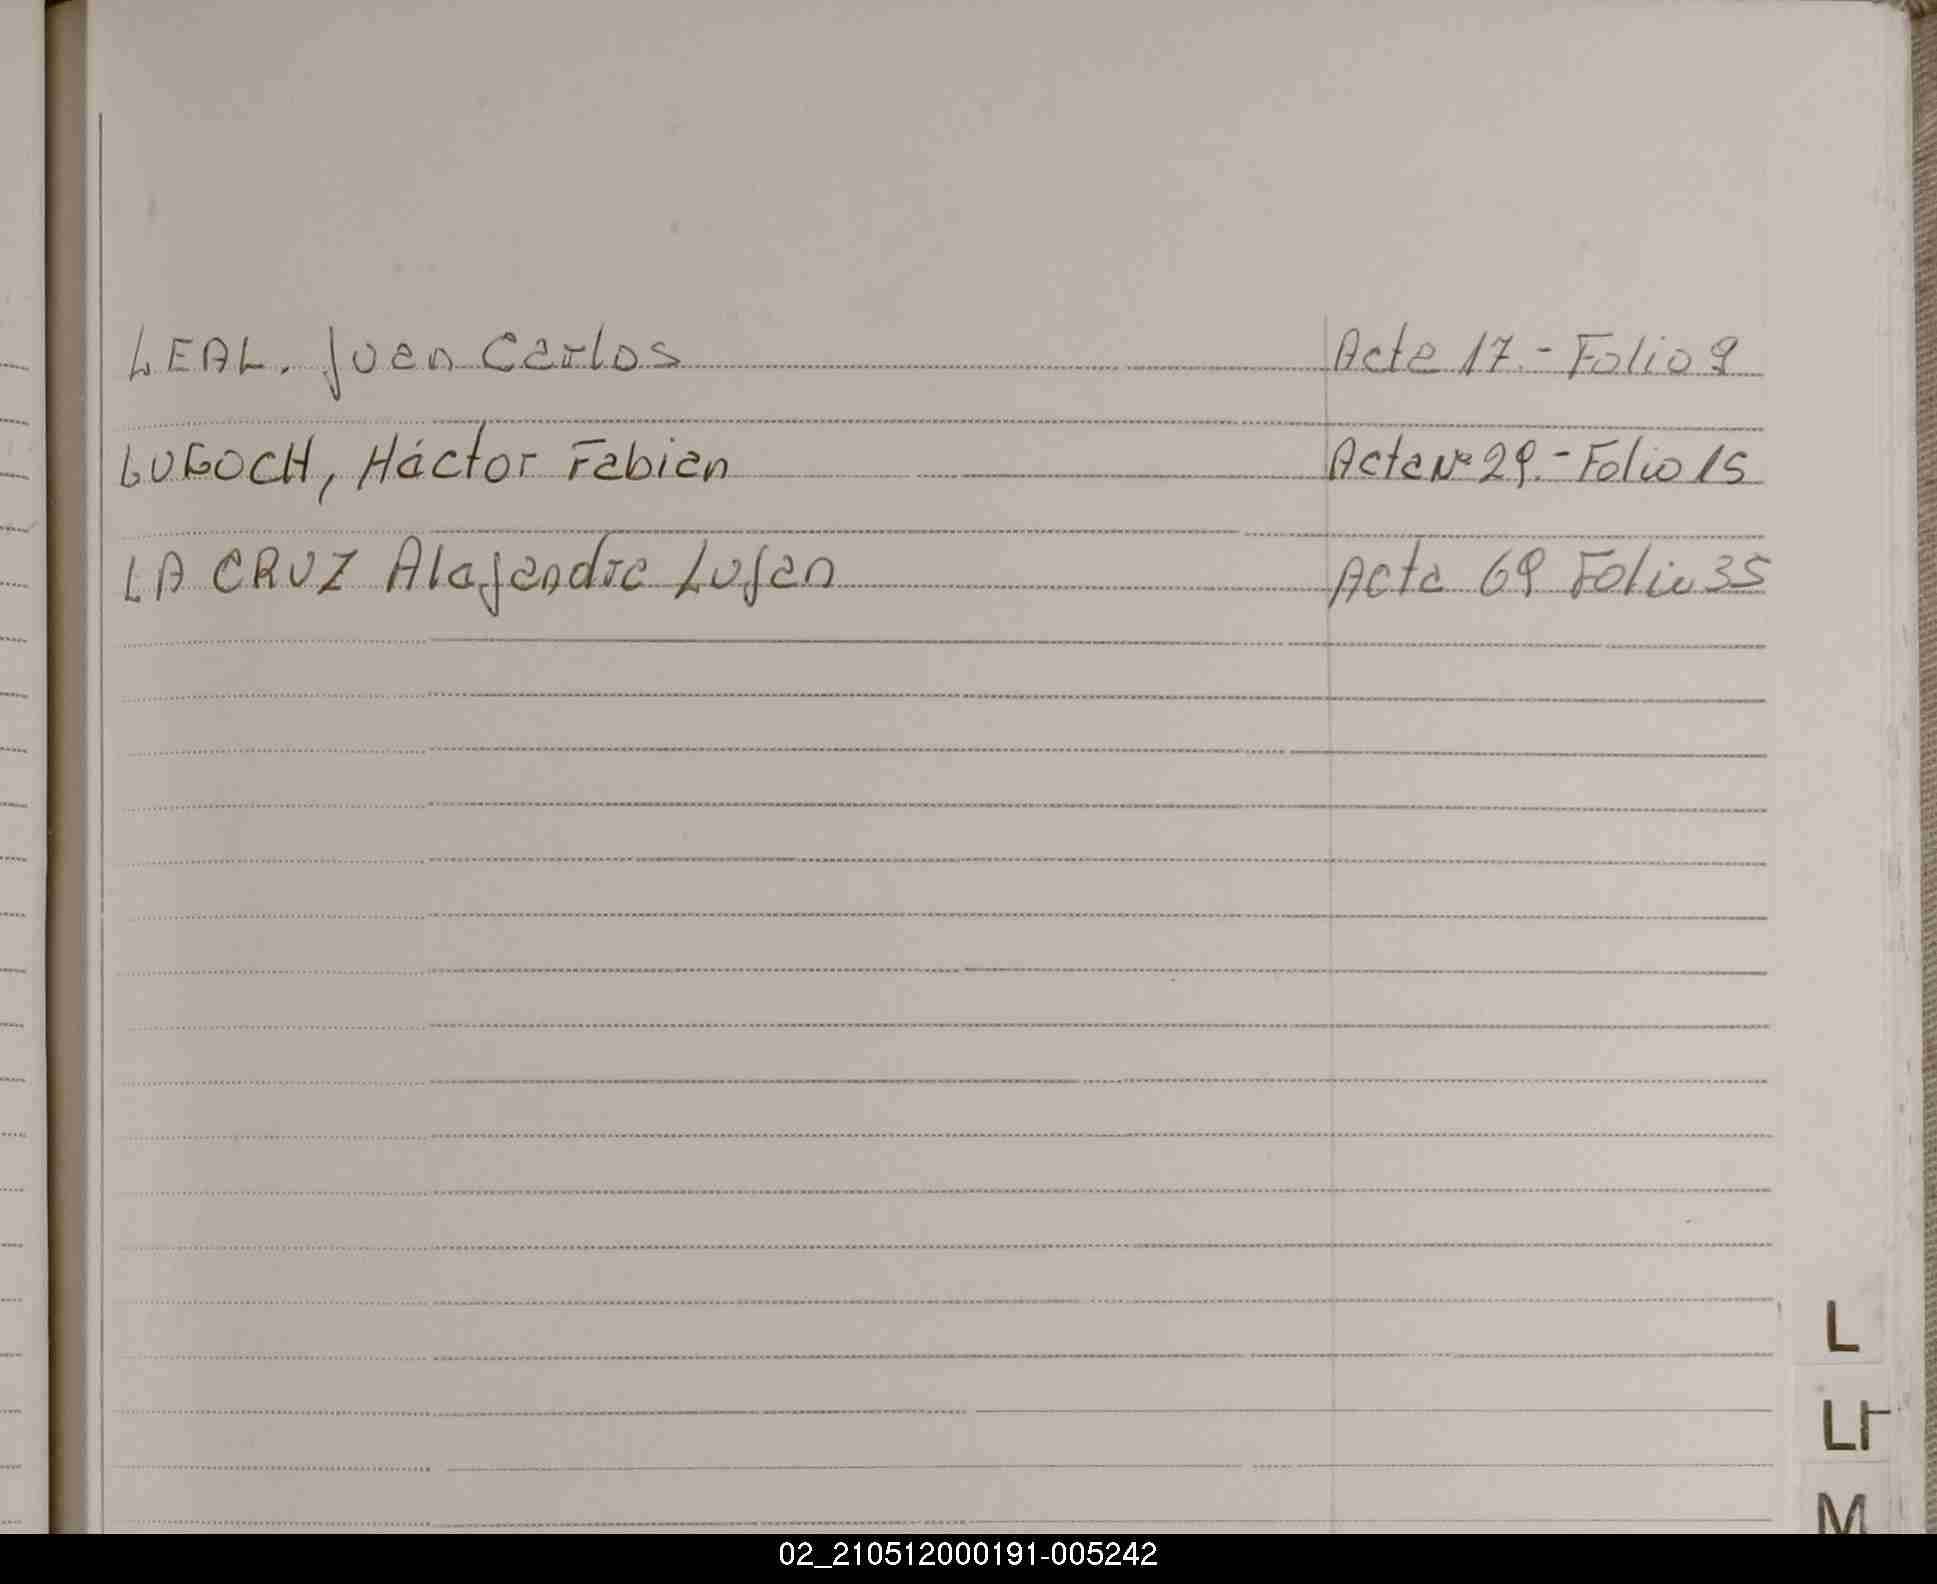 LEAL. Juan Carlos Acta 17.- Folio 9
LUGOCH, Héctor Fabian Acta Nº 29.- Folio 15
LA CRUZ Alejandra Lujan Acta 69 Folio 35
L
Ll
M
02_210512000191-005242